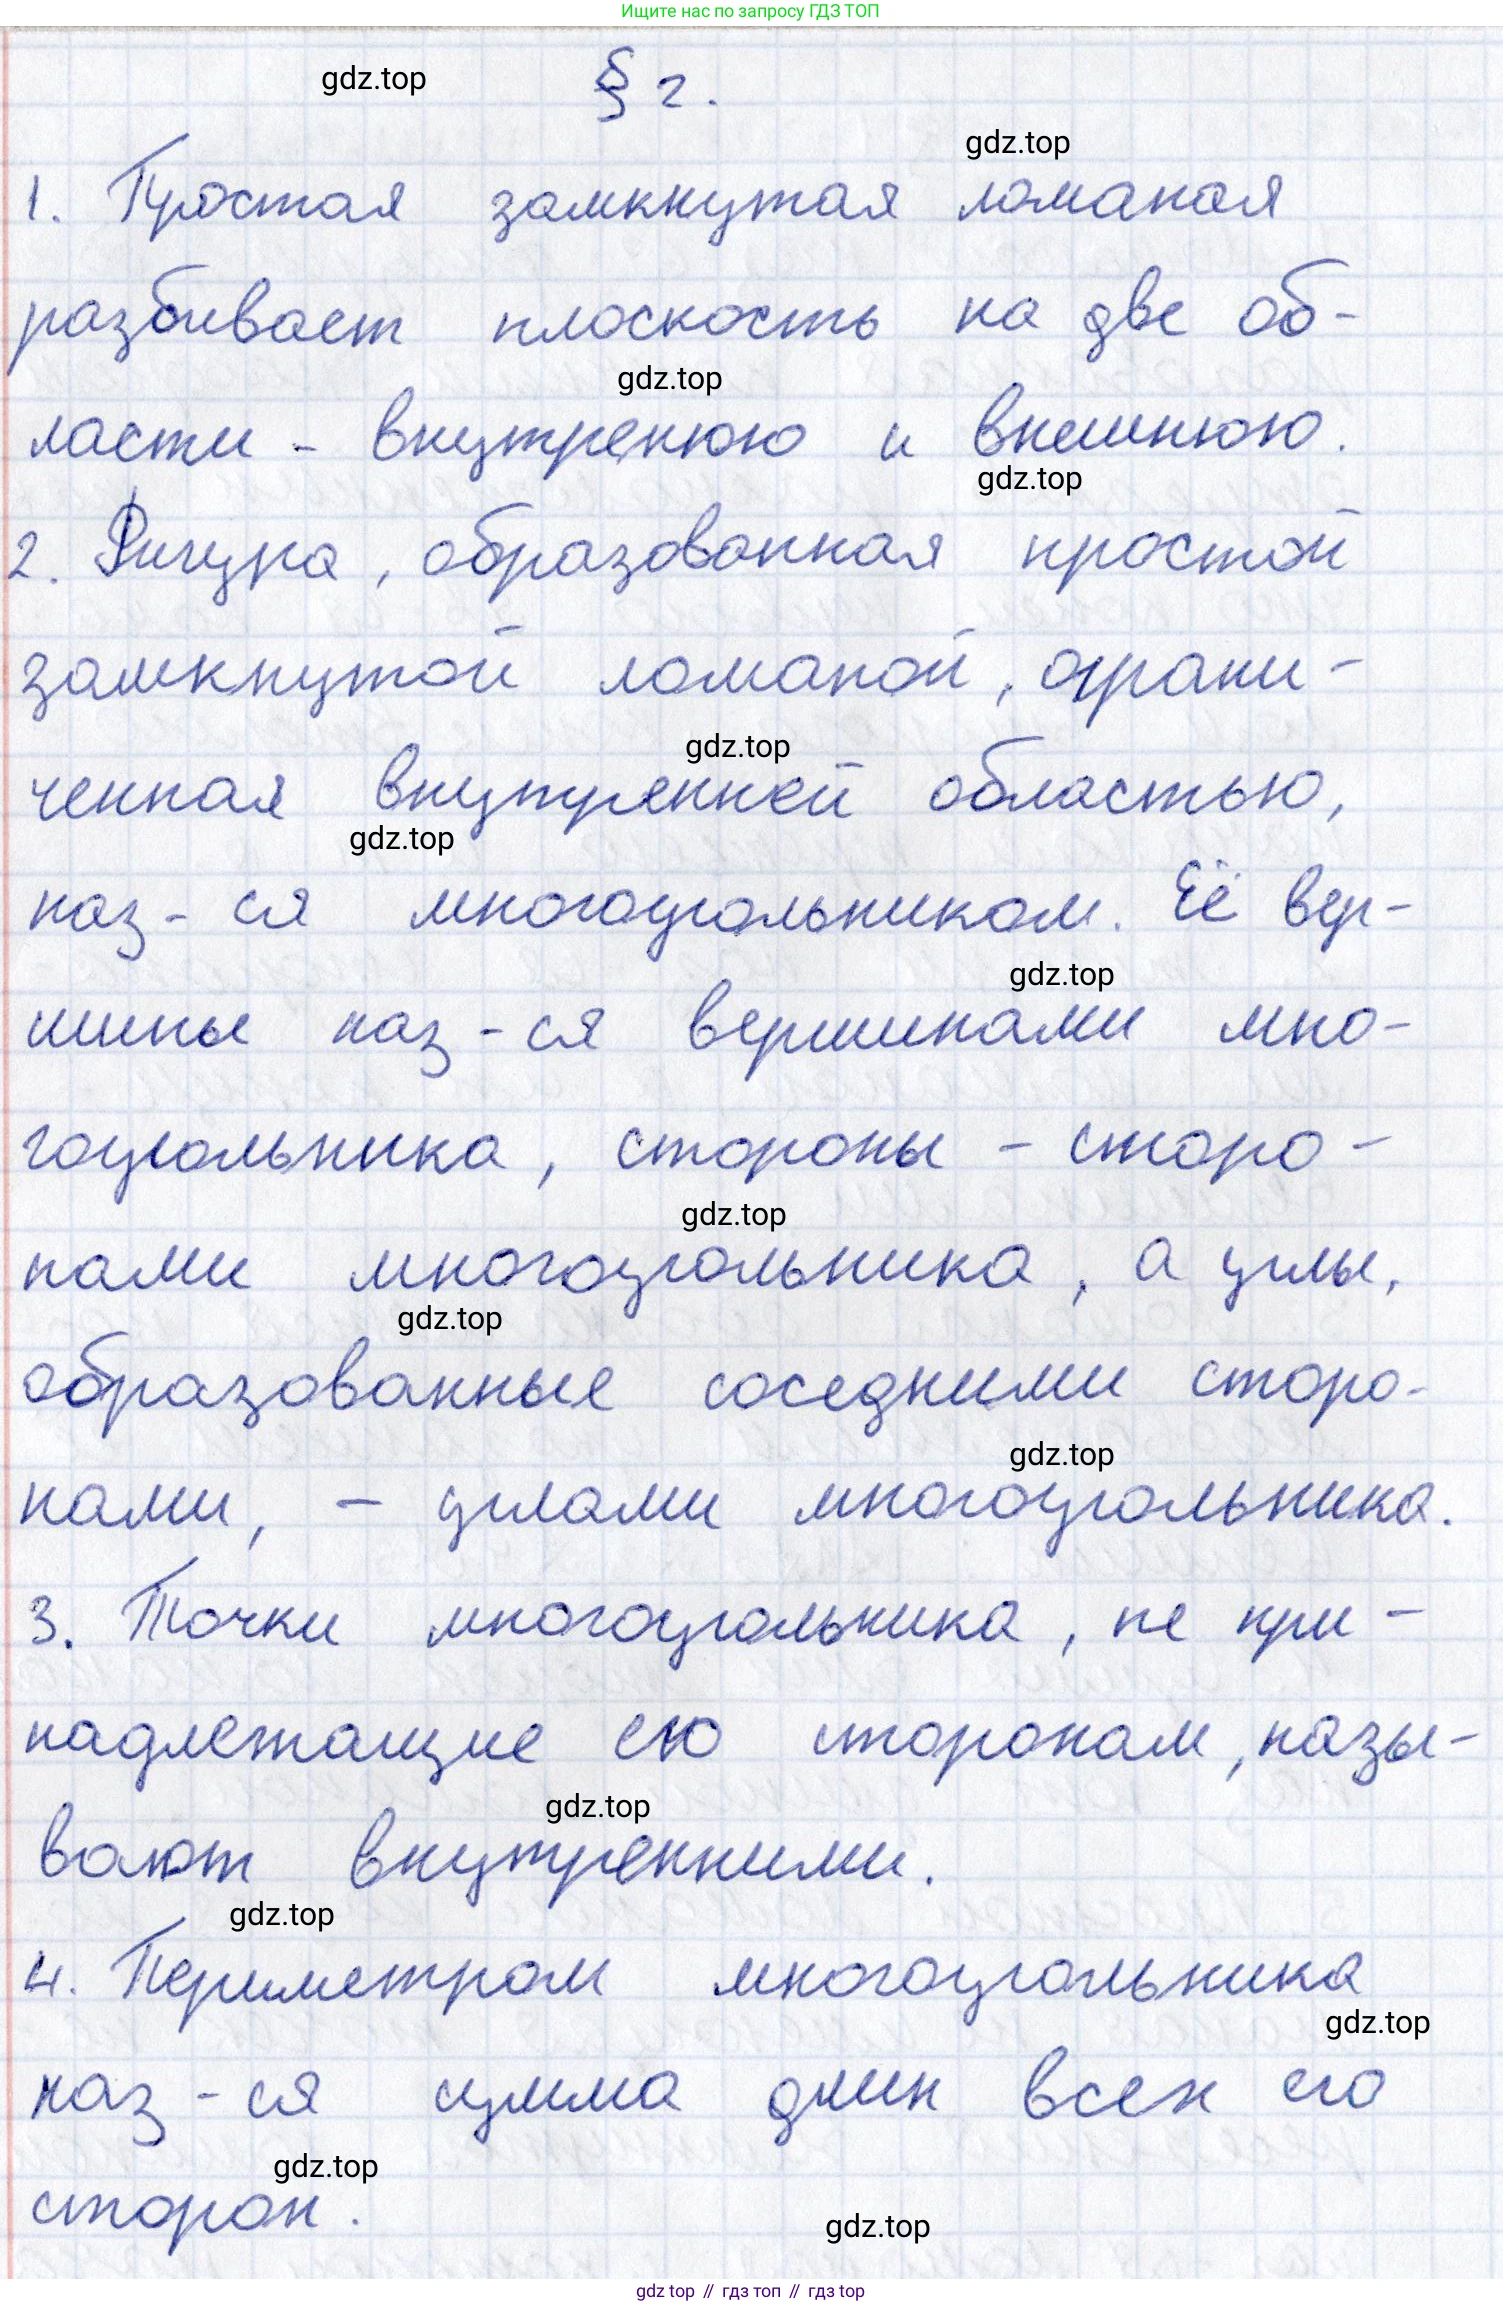 Ищите нас по запросу ГДЗ ТОП
gdz.top
§ 2.
gdz.top
1. Простая замкнутая ломаная
разбивает плоскость на две об-
gdz.top
ласти - внутренюю и внешнюю.
gdz.top
2. Фигура, образованная простой
замкнутой ломаной, ограни-
gdz.top
ченная внутренней областью,
gdz.top
наз-ся многоугольником. Её вер-
gdz.top
шины наз-ся вершинами мно-
гоугольника, стороны - сторо-
gdz.top
нами многоугольника, а углы,
gdz.top
образованные соседними сторо-
gdz.top
нами, - углами многоугольника.
3. Точки многоугольника, не при-
надлежащие его сторонам, назы-
gdz.top
вают внутренними.
gdz.top
4. Периметром многоугольника
gdz.top
наз-ся сумма длин всех его
gdz.top
сторон.
gdz.top
gdz top // гдз топ // гдз top